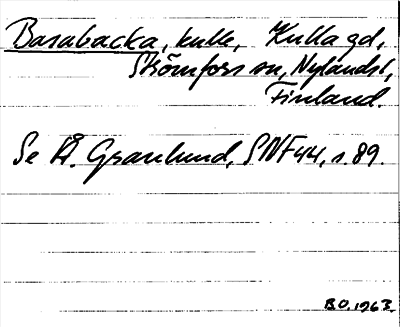 Barabacka, kulle, Kulla gd,
Strömfors sn, Nylands l,
Finland.
Se Å. Granlund, SNF 44, s. 89.
B.O. 1963.